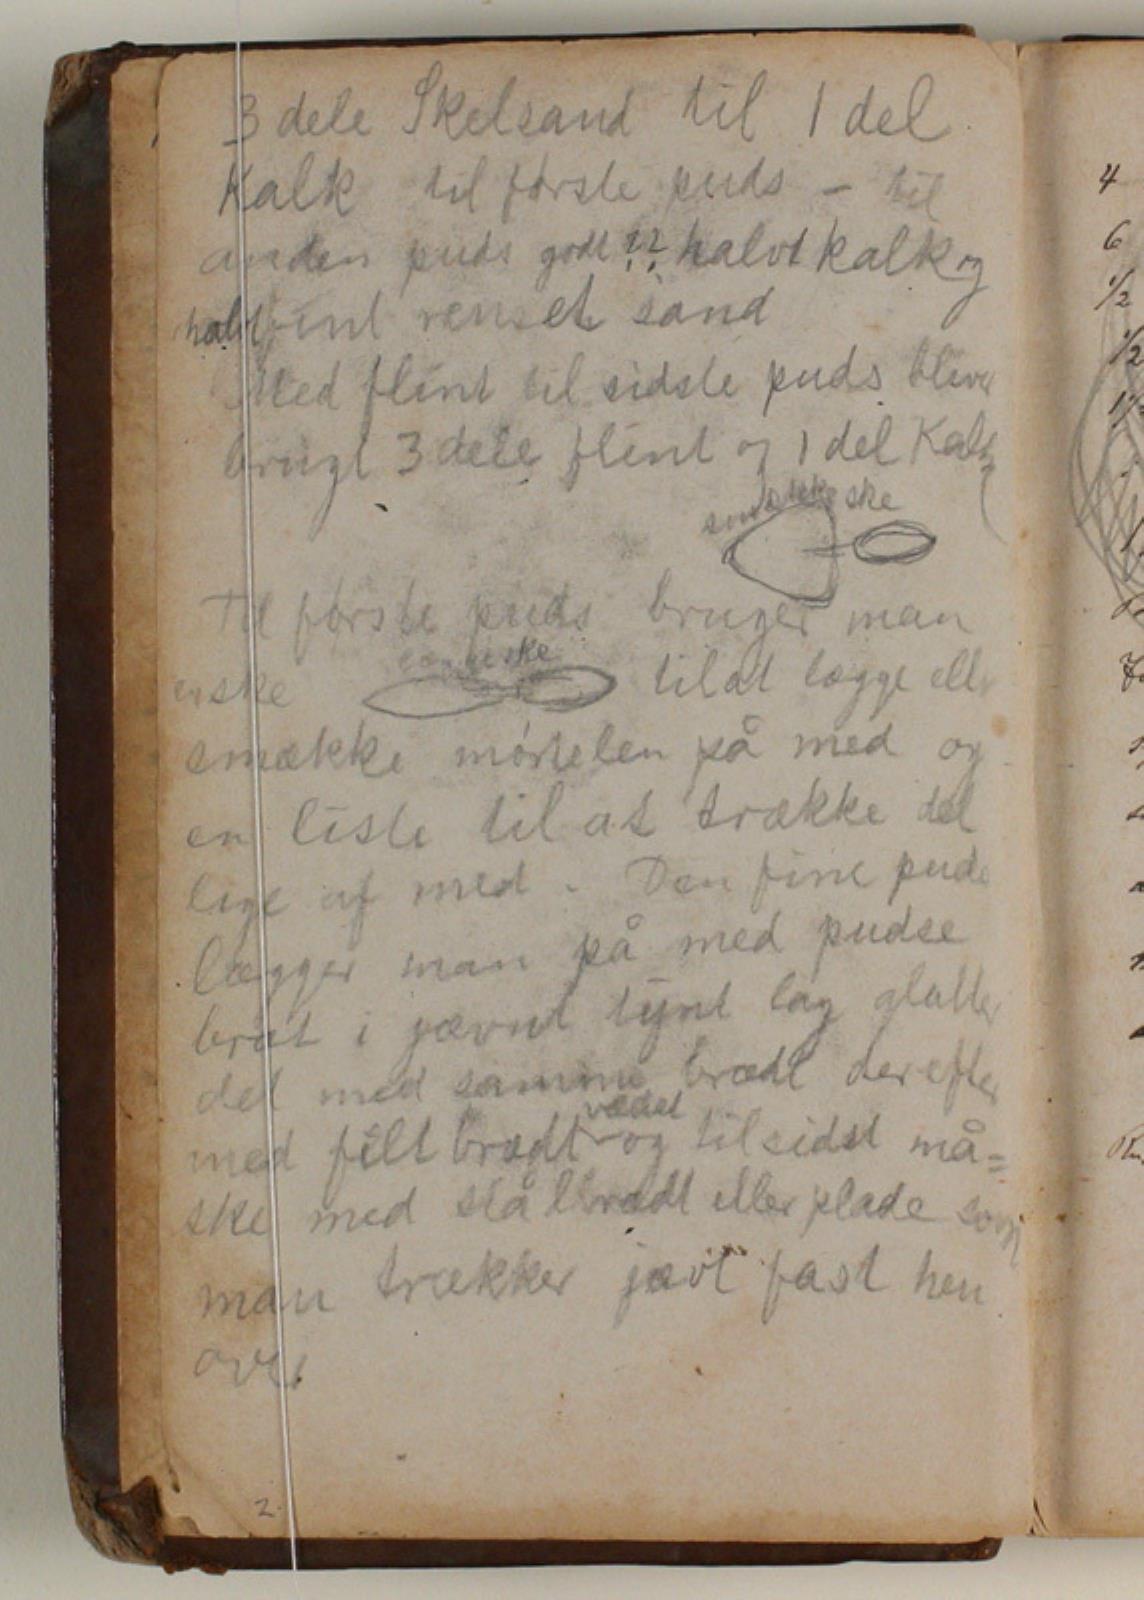 3 dele Skelsand til 1 del
Kalk til første puds – til
anden puds godt !! halvt kalk og
halvt fint renset sand
Med flint til sidste puds blive
brugt 3 dele flint og 1 del Kalk
smække ske
Til første puds bruger man
ske
en ske til at lægge eller
smække mørtelen på med og
en liste til at trække det
lige af med. Den fine puds
lægger man på med pudse
bræt i jævnt tynt lag glatter
det med samme brædt derefter
vædet
med filt brædt og tilsidst må=
ske med stålbrædt eller plade som
man trækker jævt fast hen
over
2
4
6
1/2
1/2